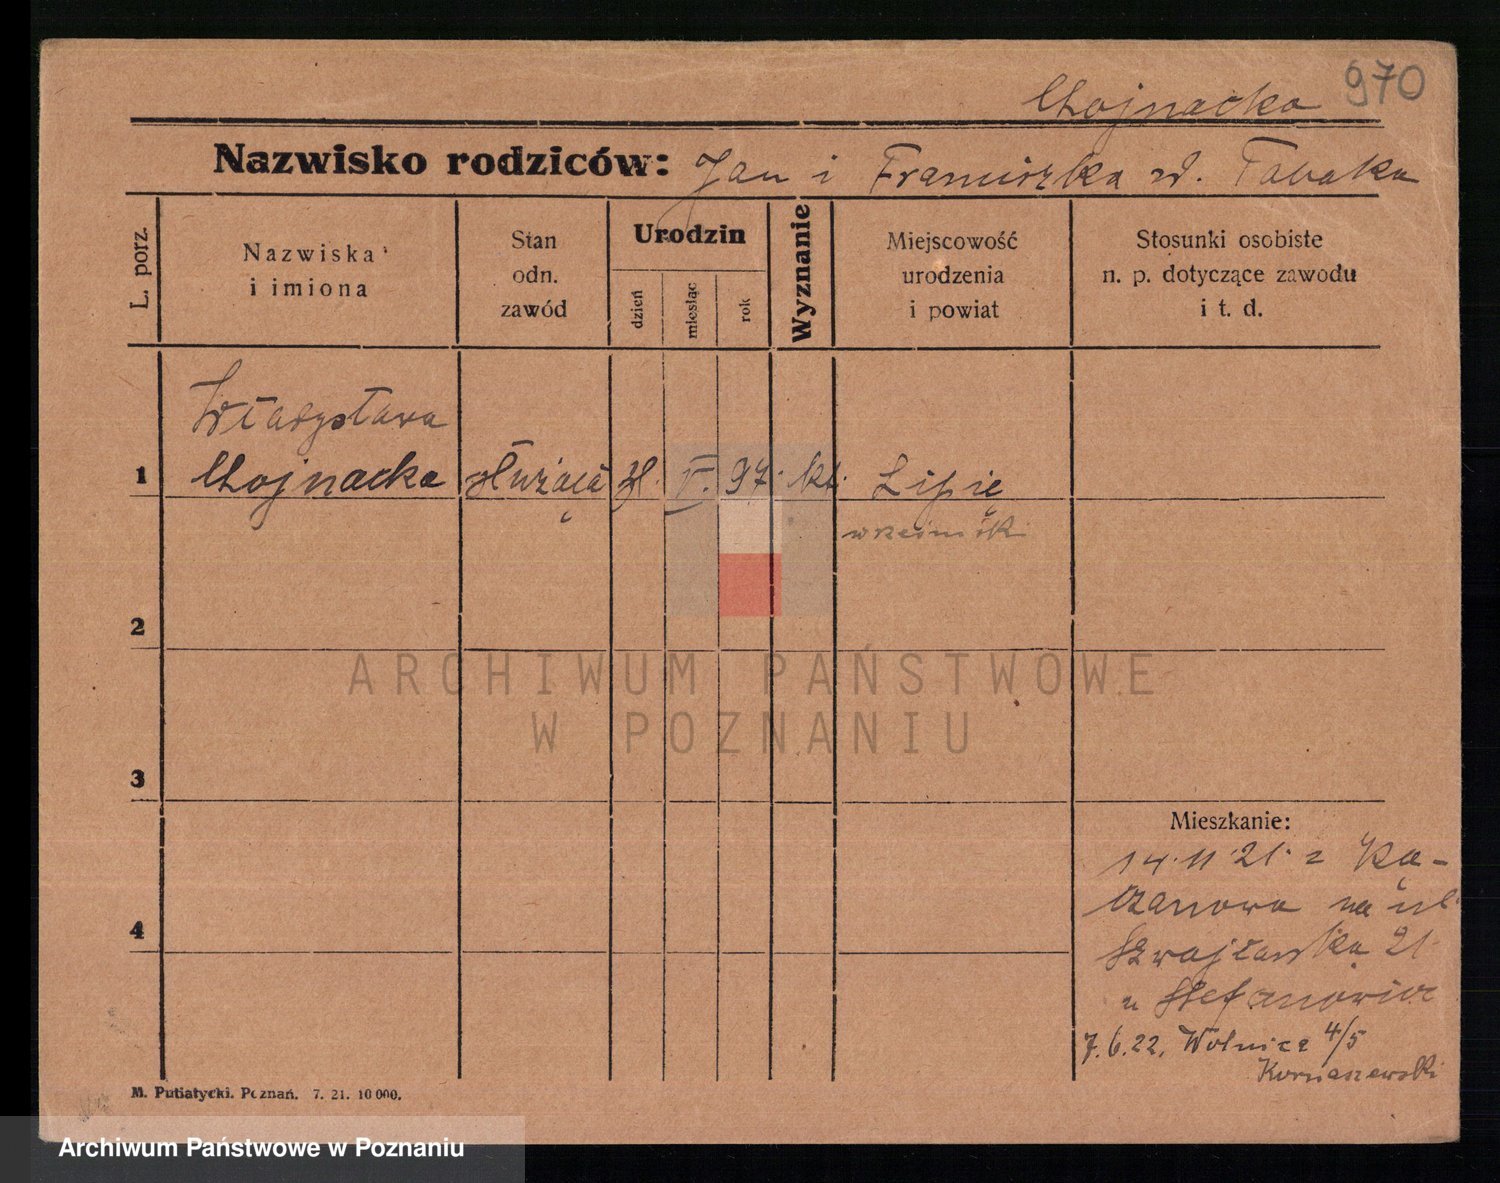 970
Chojnacka
Nazwisko rodziców: Jan i Franciszka d. Tabaka
L. porz.
Nazwiska i imiona
Stan odn. zawód
Urodzin
dzień
miesiąc
rok
Wyznanie
Miejscowość urodzenia i powiat
Stosunki osobiste n. p. dotyczące zawodu i t. d.
Władysława
1 Chojnacka służąca V. 97. kt. Lipie
wrzesiński
2
ARCHIWUM PAŃSTWOWE
W POZNANIU
3
Mieszkanie:
14.11.21. z Ka-
czanowa na ul.
4
21
u Stefanowicz
7.6.22. Wolnica 4/5
M. Putiatycki. Poznań. 7. 21. 10 000.
Archiwum Państwowe w Poznaniu